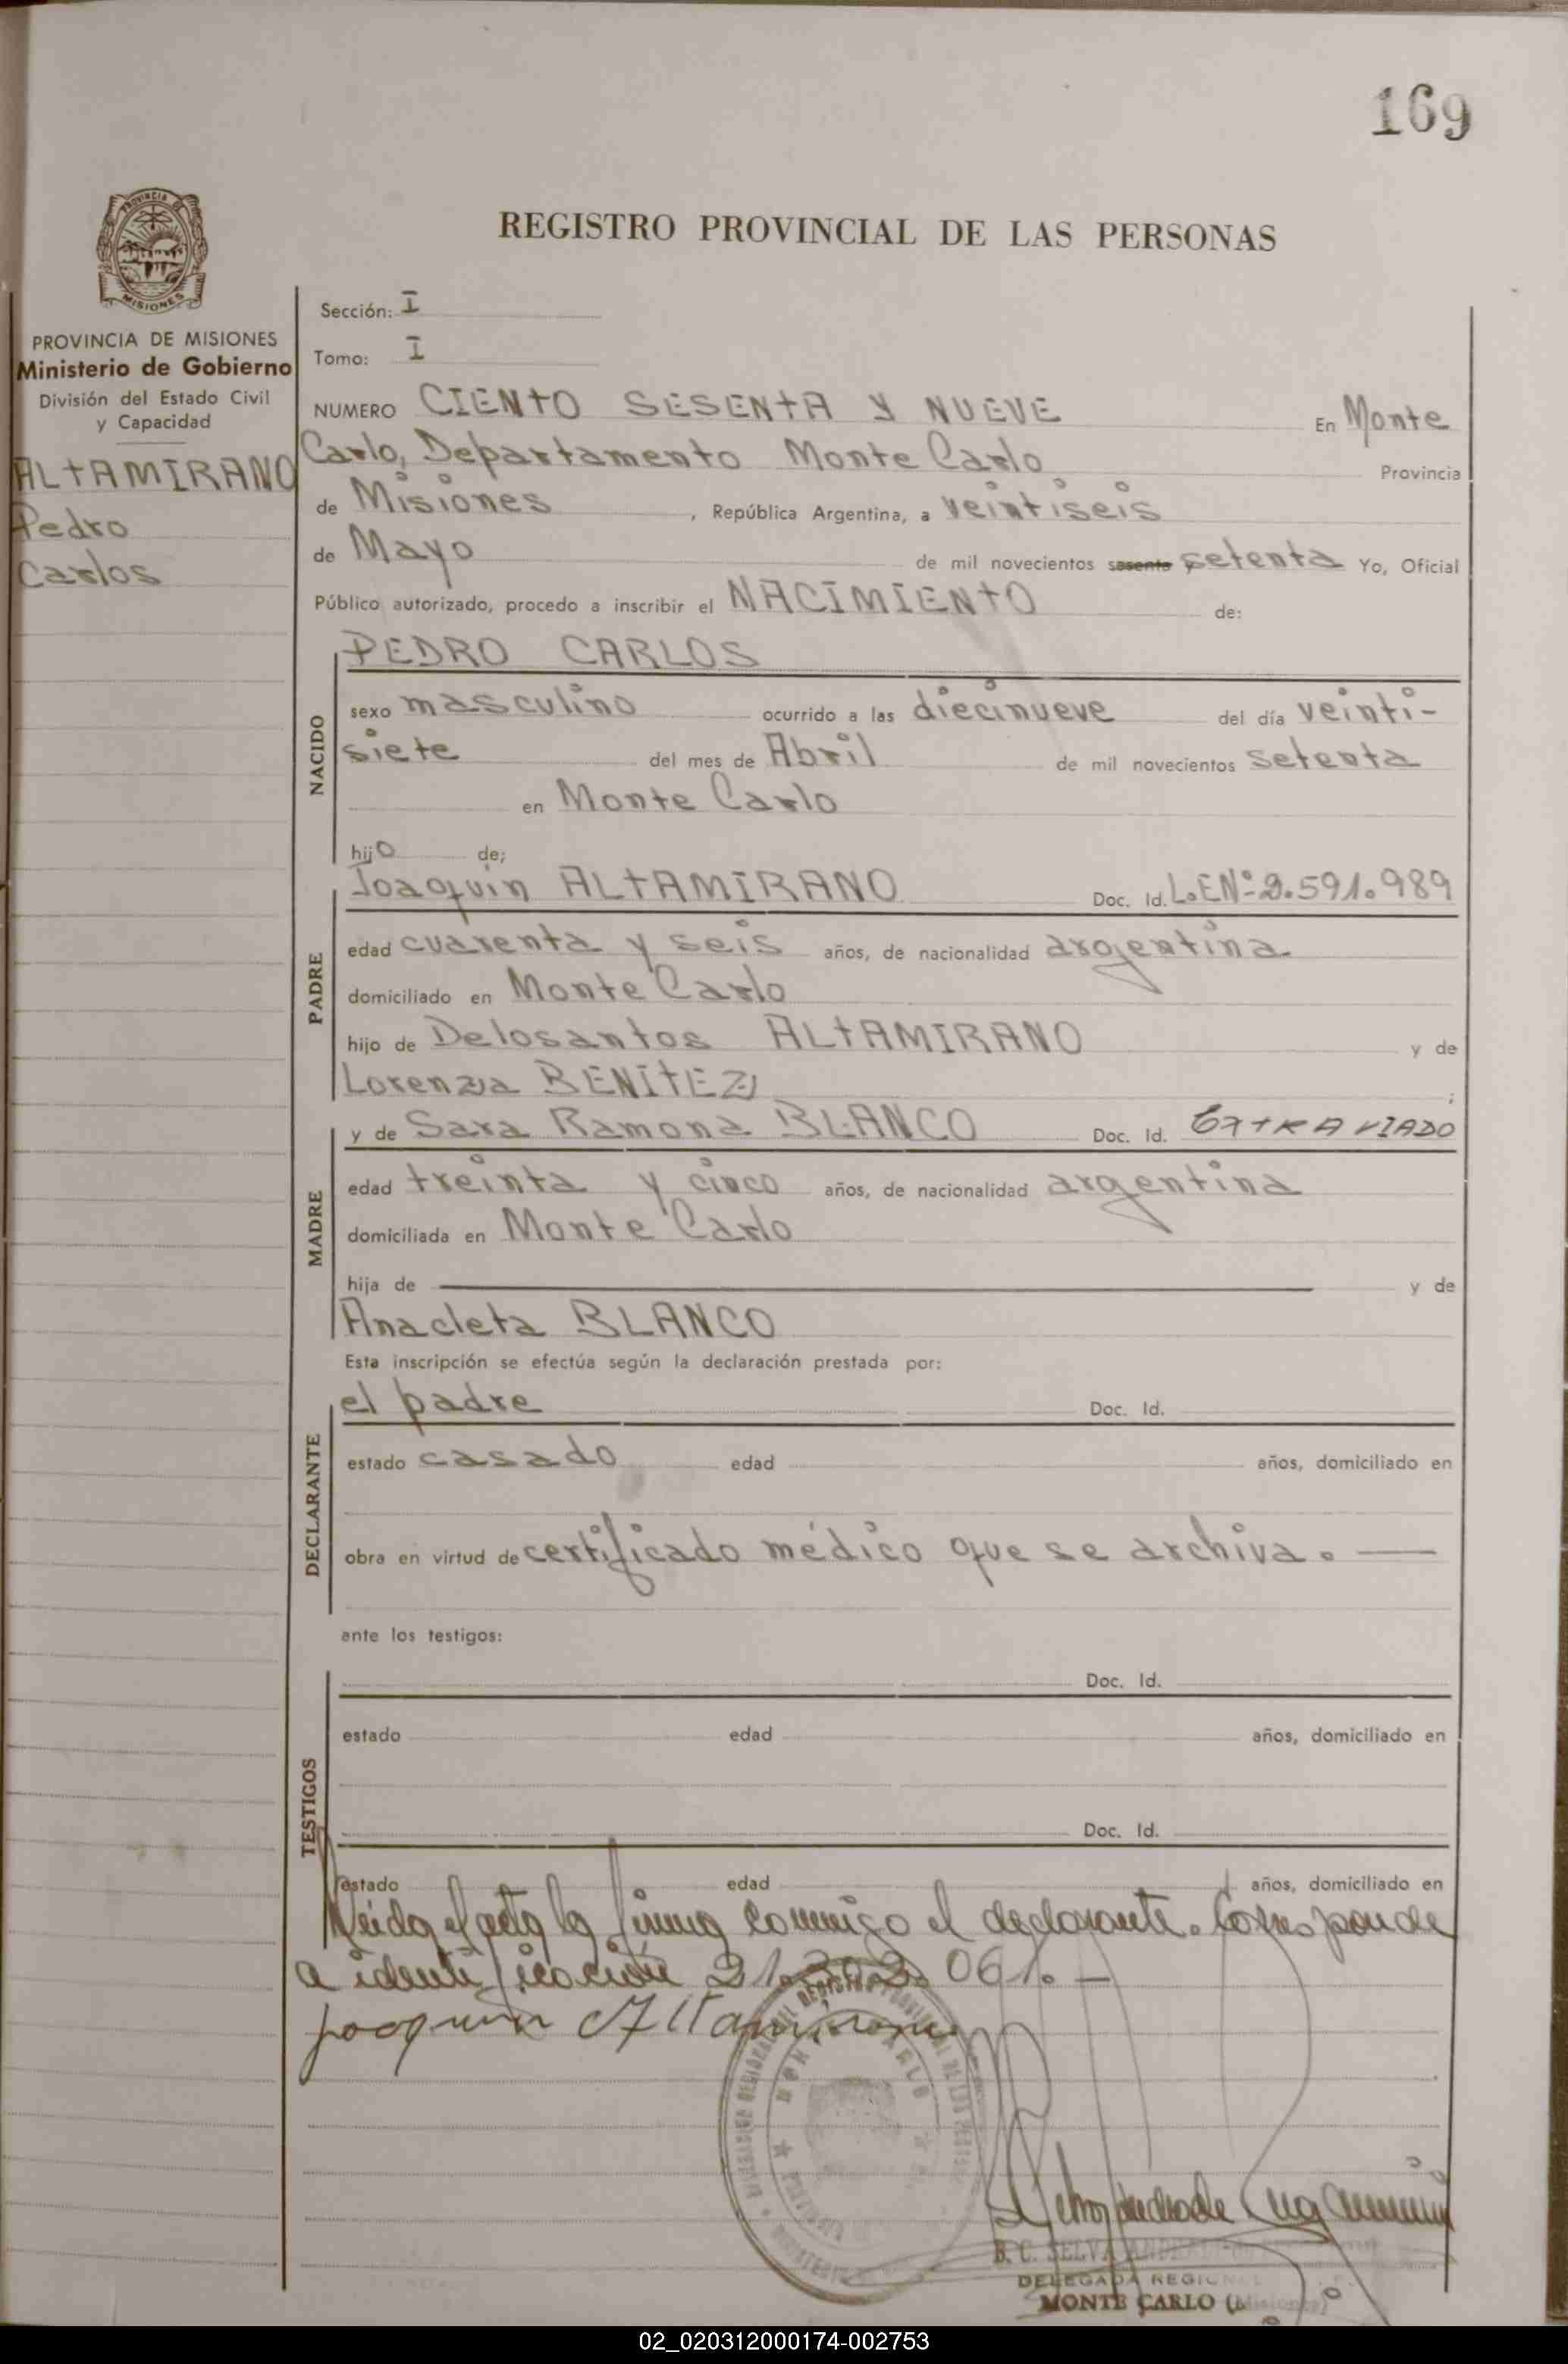 169
PROVINCIA DE
MISIONES
REGISTRO PROVINCIAL DE LAS PERSONAS
PROVINCIA DE MISIONES
Ministerio de Gobierno
División del Estado Civil
y Capacidad
ALTAMIRANO
Pedro
Carlos
Sección: I
Tomo: I
NUMERO CIENTO SESENTA Y NUEVE En Monte
Carlo, Departamento Monte Carlo Provincia
de Misiones, República Argentina, a veintiseis
de Mayo de mil novecientos sesenta setenta Yo, Oficial
Público autorizado, procedo a inscribir el NACIMIENTO de:
PEDRO CARLOS
NACIDO
sexo masculino ocurrido a las diecinueve del día veinti-
siete del mes de Abril de mil novecientos setenta
en Monte Carlo
hijo de;
PADRE
Joaquin ALTAMIRANO Doc. Id. L.E.Nº 2.591.989
edad cuarenta y seis años, de nacionalidad argentina.
domiciliado en Monte Carlo
hijo de Delosantos ALTAMIRANO y de
Lorenza BENITEZ ;
MADRE
y de Sara Ramona BLANCO Doc. Id. EXTRAVIADO
edad treinta y cinco años, de nacionalidad argentina
domiciliada en Monte Carlo
hija de y de
Anacleta BLANCO
Esta inscripción se efectúa según la declaración prestada por:
DECLARANTE
el padre Doc. Id.
estado casado edad años, domiciliado en
obra en virtud de certificado médico que se archiva. —
ante los testigos:
TESTIGOS
Doc. Id.
estado edad años, domiciliado en
Doc. Id.
estado edad años, domiciliado en
Leida el acta la firma conmigo el declarante. Corresponde
a identificación 21.302.061. —
Joaquin Altamirano
B. C. SELVA
DELEGADA REGIONAL
MONTE CARLO (Misiones)
02_020312000174-002753